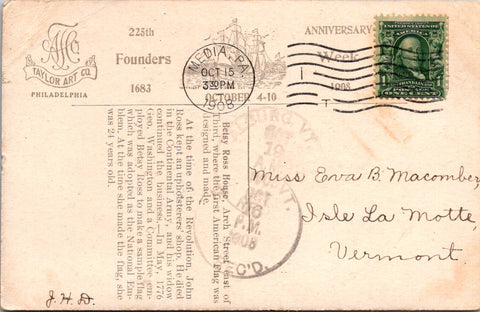 225th
ANNIVERSARY
Founders
Week
1683
1908
OCTOBER 4-10
TAYLOR ART CO.
PHILADELPHIA
MEDIA, PA.
OCT 15
3 30 PM
1908
Betsy Ross House, Arch Street east of
Third, where the first American Flag was
designed and made.
At the time of the Revolution, John
Ross kept an upholsterers' shop. He died
in the Continental Army, and his widow
continued the business.—In May, 1776
Geo. Washington and a Committee, em-
ployed Betsy Ross to make a sample flag
which was adopted as the National Em-
blem. At the time she made the flag, she
was 24 years old.
VT.
OCT
16
P.M.
1908
C'D.
Miss Eva B. Macomber,
Isle La Motte,
Vermont.
J.H.D.